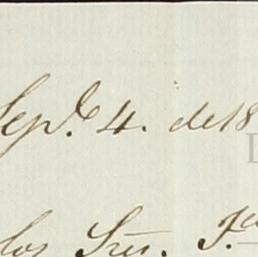 Sep.e 4. de 18
los Sres. F.co